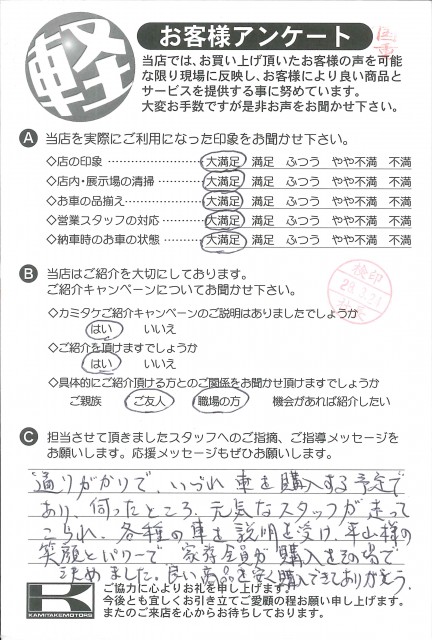 軽
お客様アンケート
当店では、お買い上げ頂いたお客様の声を可能
な限り現場に反映し、お客様により良い商品と
サービスを提供する事に努めています。
大変お手数ですが是非お声をお聞かせ下さい。
A 当店を実際にご利用になった印象をお聞かせ下さい。
◇店の印象 ………………… 大満足 満足 ふつう やや不満 不満
◇店内・展示場の清掃………… 大満足 満足 ふつう やや不満 不満
◇お車の品揃え……………… 大満足 満足 ふつう やや不満 不満
◇営業スタッフの対応………… 大満足 満足 ふつう やや不満 不満
◇納車時のお車の状態………… 大満足 満足 ふつう やや不満 不満
B 当店はご紹介を大切にしております。
ご紹介キャンペーンについてお聞かせ下さい。
検印
◇カミタケご紹介キャンペーンのご説明はありましたでしょうか
はい いいえ
◇ご紹介を頂けますでしょうか
はい いいえ
◇具体的にご紹介頂ける方とのご関係をお聞かせ頂けますでしょうか
ご親族 ご友人 職場の方 機会があれば紹介したい
C 担当させて頂きましたスタッフへのご指摘、ご指導メッセージを
お願いします。応援メッセージもぜひお願いします。
通りがかりで、いづれ車を購入する予定で
あり、伺ったところ、元気なスタッフが走って
こられ、各種の車を説明を受け、平山様の
笑顔とパワーで、家族全員が購入をその場で
決めました。良い商品を安く購入できてありがとう。
K
KAMITAKEMOTORS
ご協力に心よりお礼を申し上げます。
今後とも宜しくお引き立てご愛顧の程お願い申し上げます。
またのご来店を心からお待ちしております。